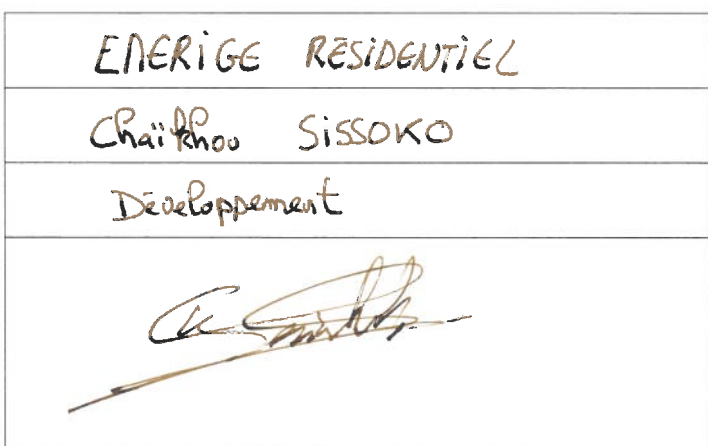 EMERIGE RÉSIDENTIEL
Chaïkhou SISSOKO
Développement